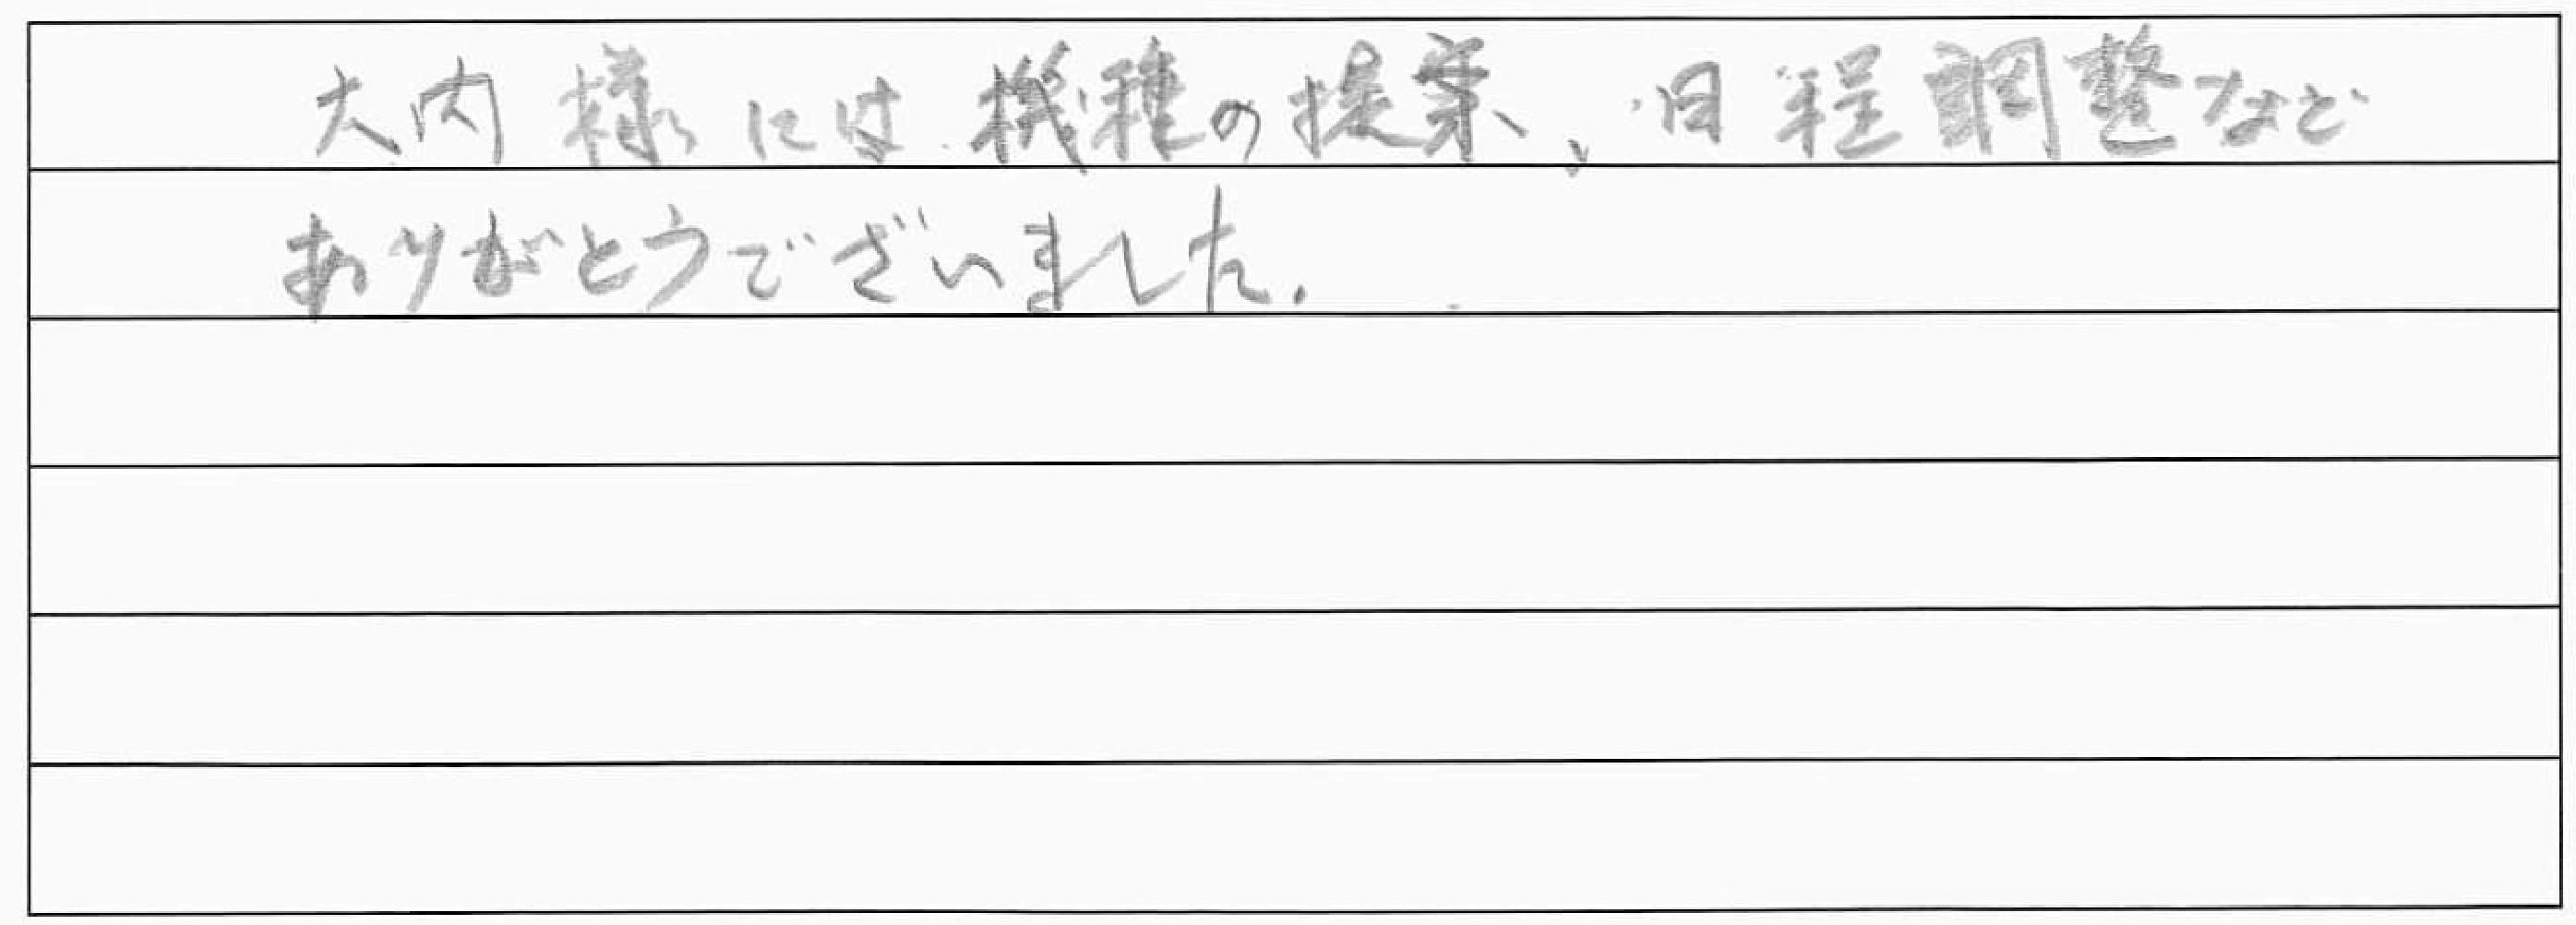 大内様には機種の提案、日程調整など
ありがとうございました.